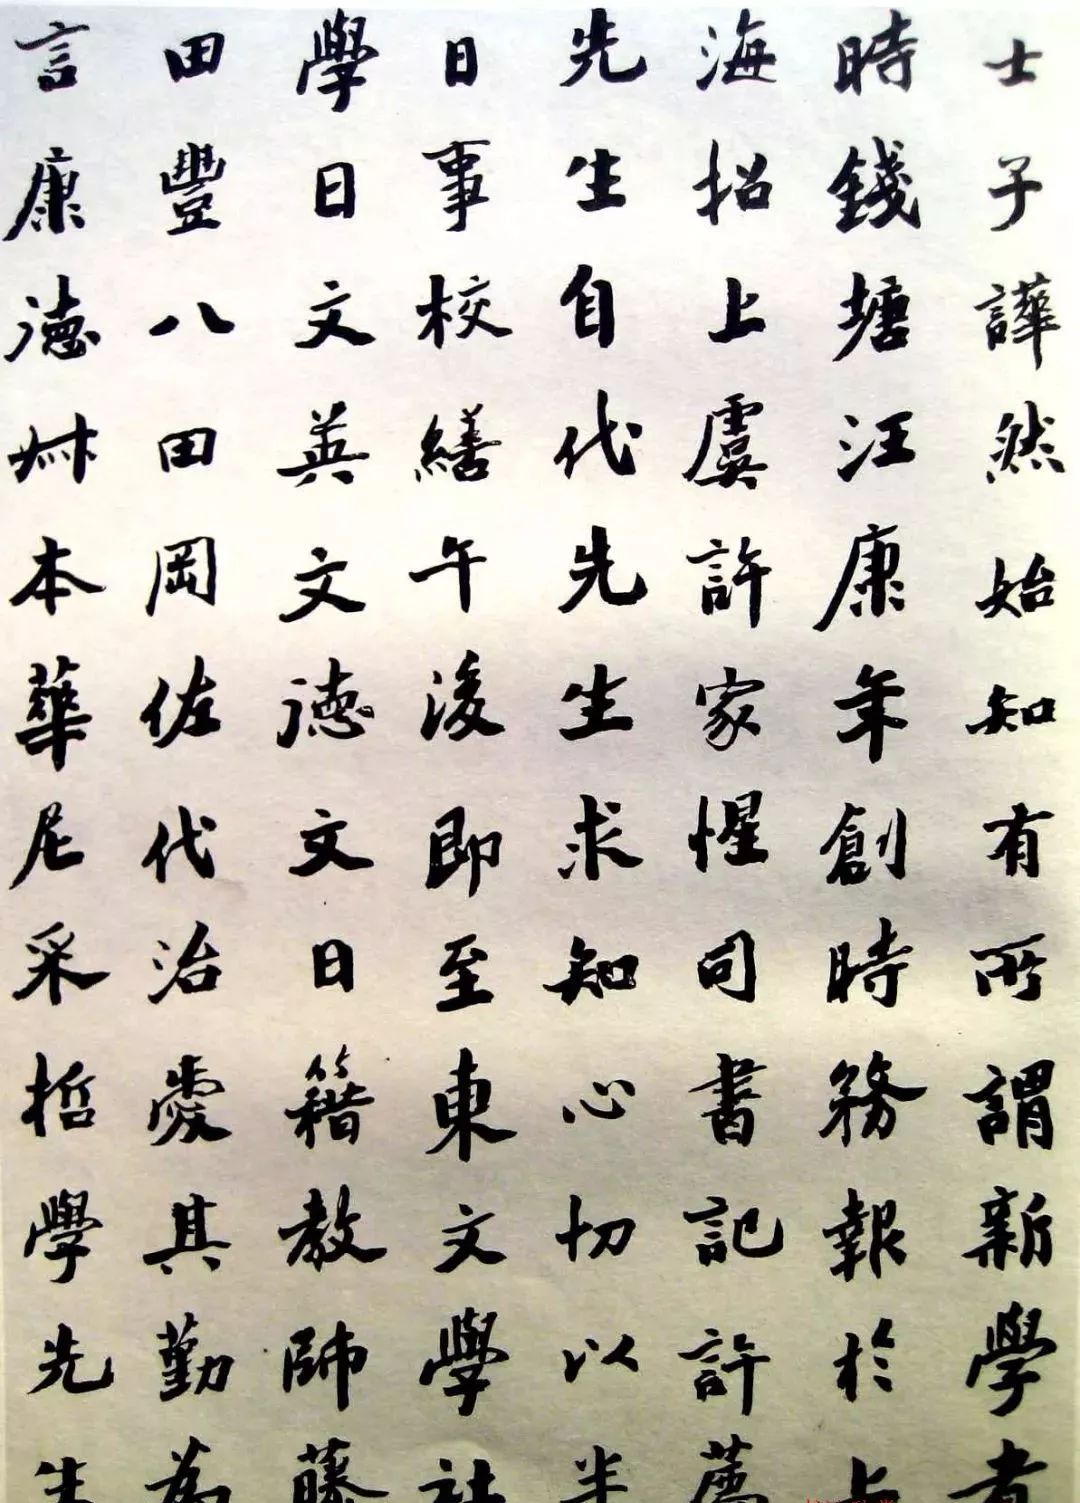 士子譁然始知有所謂新學者
時錢塘汪康年創時務報於上
海招上虞許家惺司書記許薦
先生自代先生求知心切以半
日事校繕午後即至東文學社
學日文英文德文日籍教師藤
田豐八田岡佐代治愛其勤為
言康德叔本華尼采哲學先生